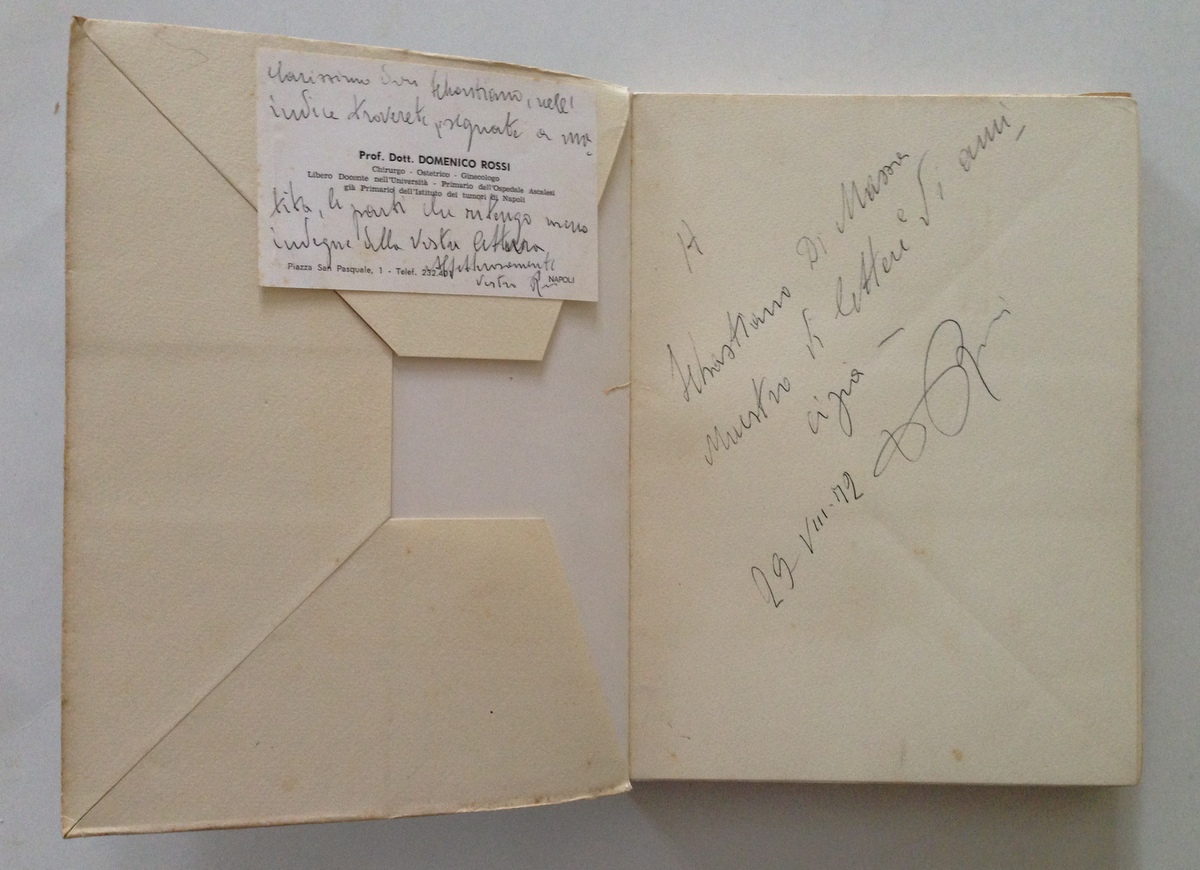 Clarissimo Don Sebastiano, nell'
indice troverete, segnate a ma-
Prof. Dott. DOMENICO ROSSI
Chirurgo - Ostetrico - Ginecologo
Libero Docente nell'Università - Primario dell'Ospedale Ascalesi
già Primario dell'Istituto dei tumori di Napoli
tita, le parti che ritengo meno
indegne della vostra lettura
Affettuosamente
Piazza San Pasquale, 1 - Telef. 232.40
vostro
NAPOLI
A
Sebastiano Di Massa
Maestro di lettere e di ami-
cizia -
29 VIII-72